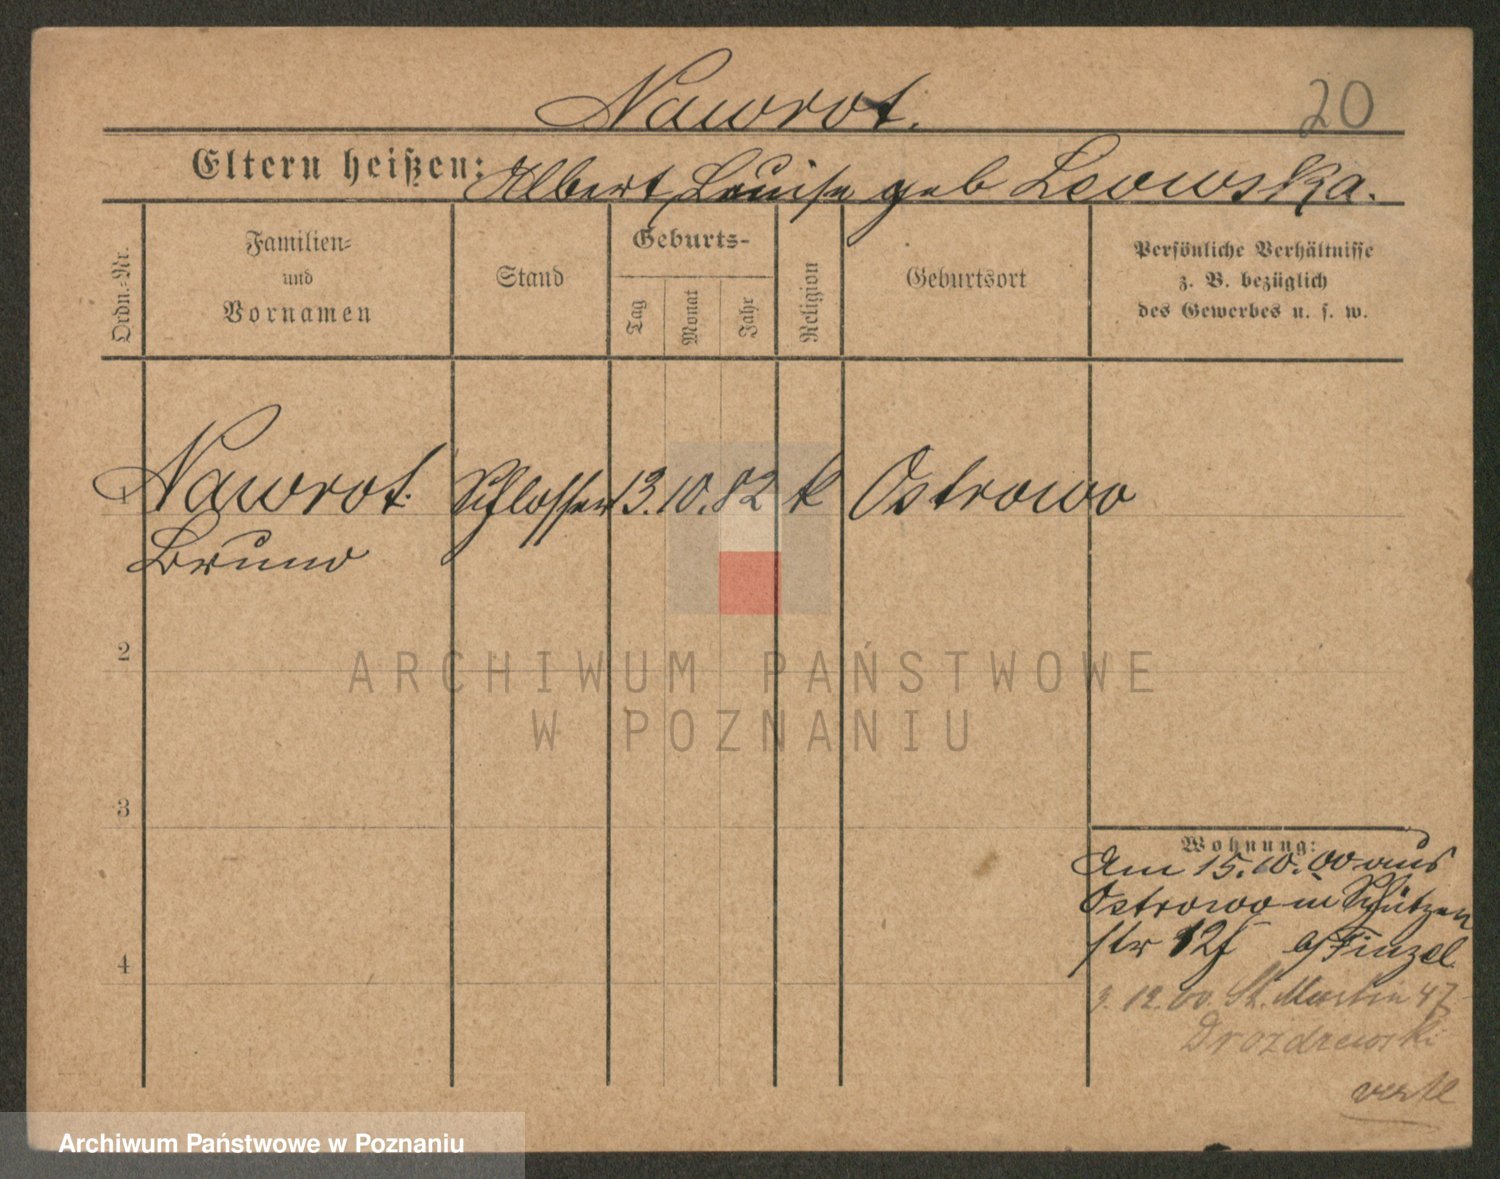 Nawrot.
20
Eltern heißen: Albert, Louise geb Leowska.
Ordn.-Nr.
Familien-
und
Vornamen
Stand
Geburts-
Tag
Monat
Jahr
Religion
Geburtsort
Persönliche Verhältnisse
z. B. bezüglich
des Gewerbes u. s. w.
1 Nawrot. Schlosser 13. 10. 82 k Ostrowo
Bruno
2
3
4
Wohnung:
Am 15.10.00 aus
Ostrowo in Schützen
str 12 b/ Finzel
3. 12. 00. St. Martin 47
Drozdzewski
ARCHIWUM PAŃSTWOWE
W POZNANIU
Archiwum Państwowe w Poznaniu